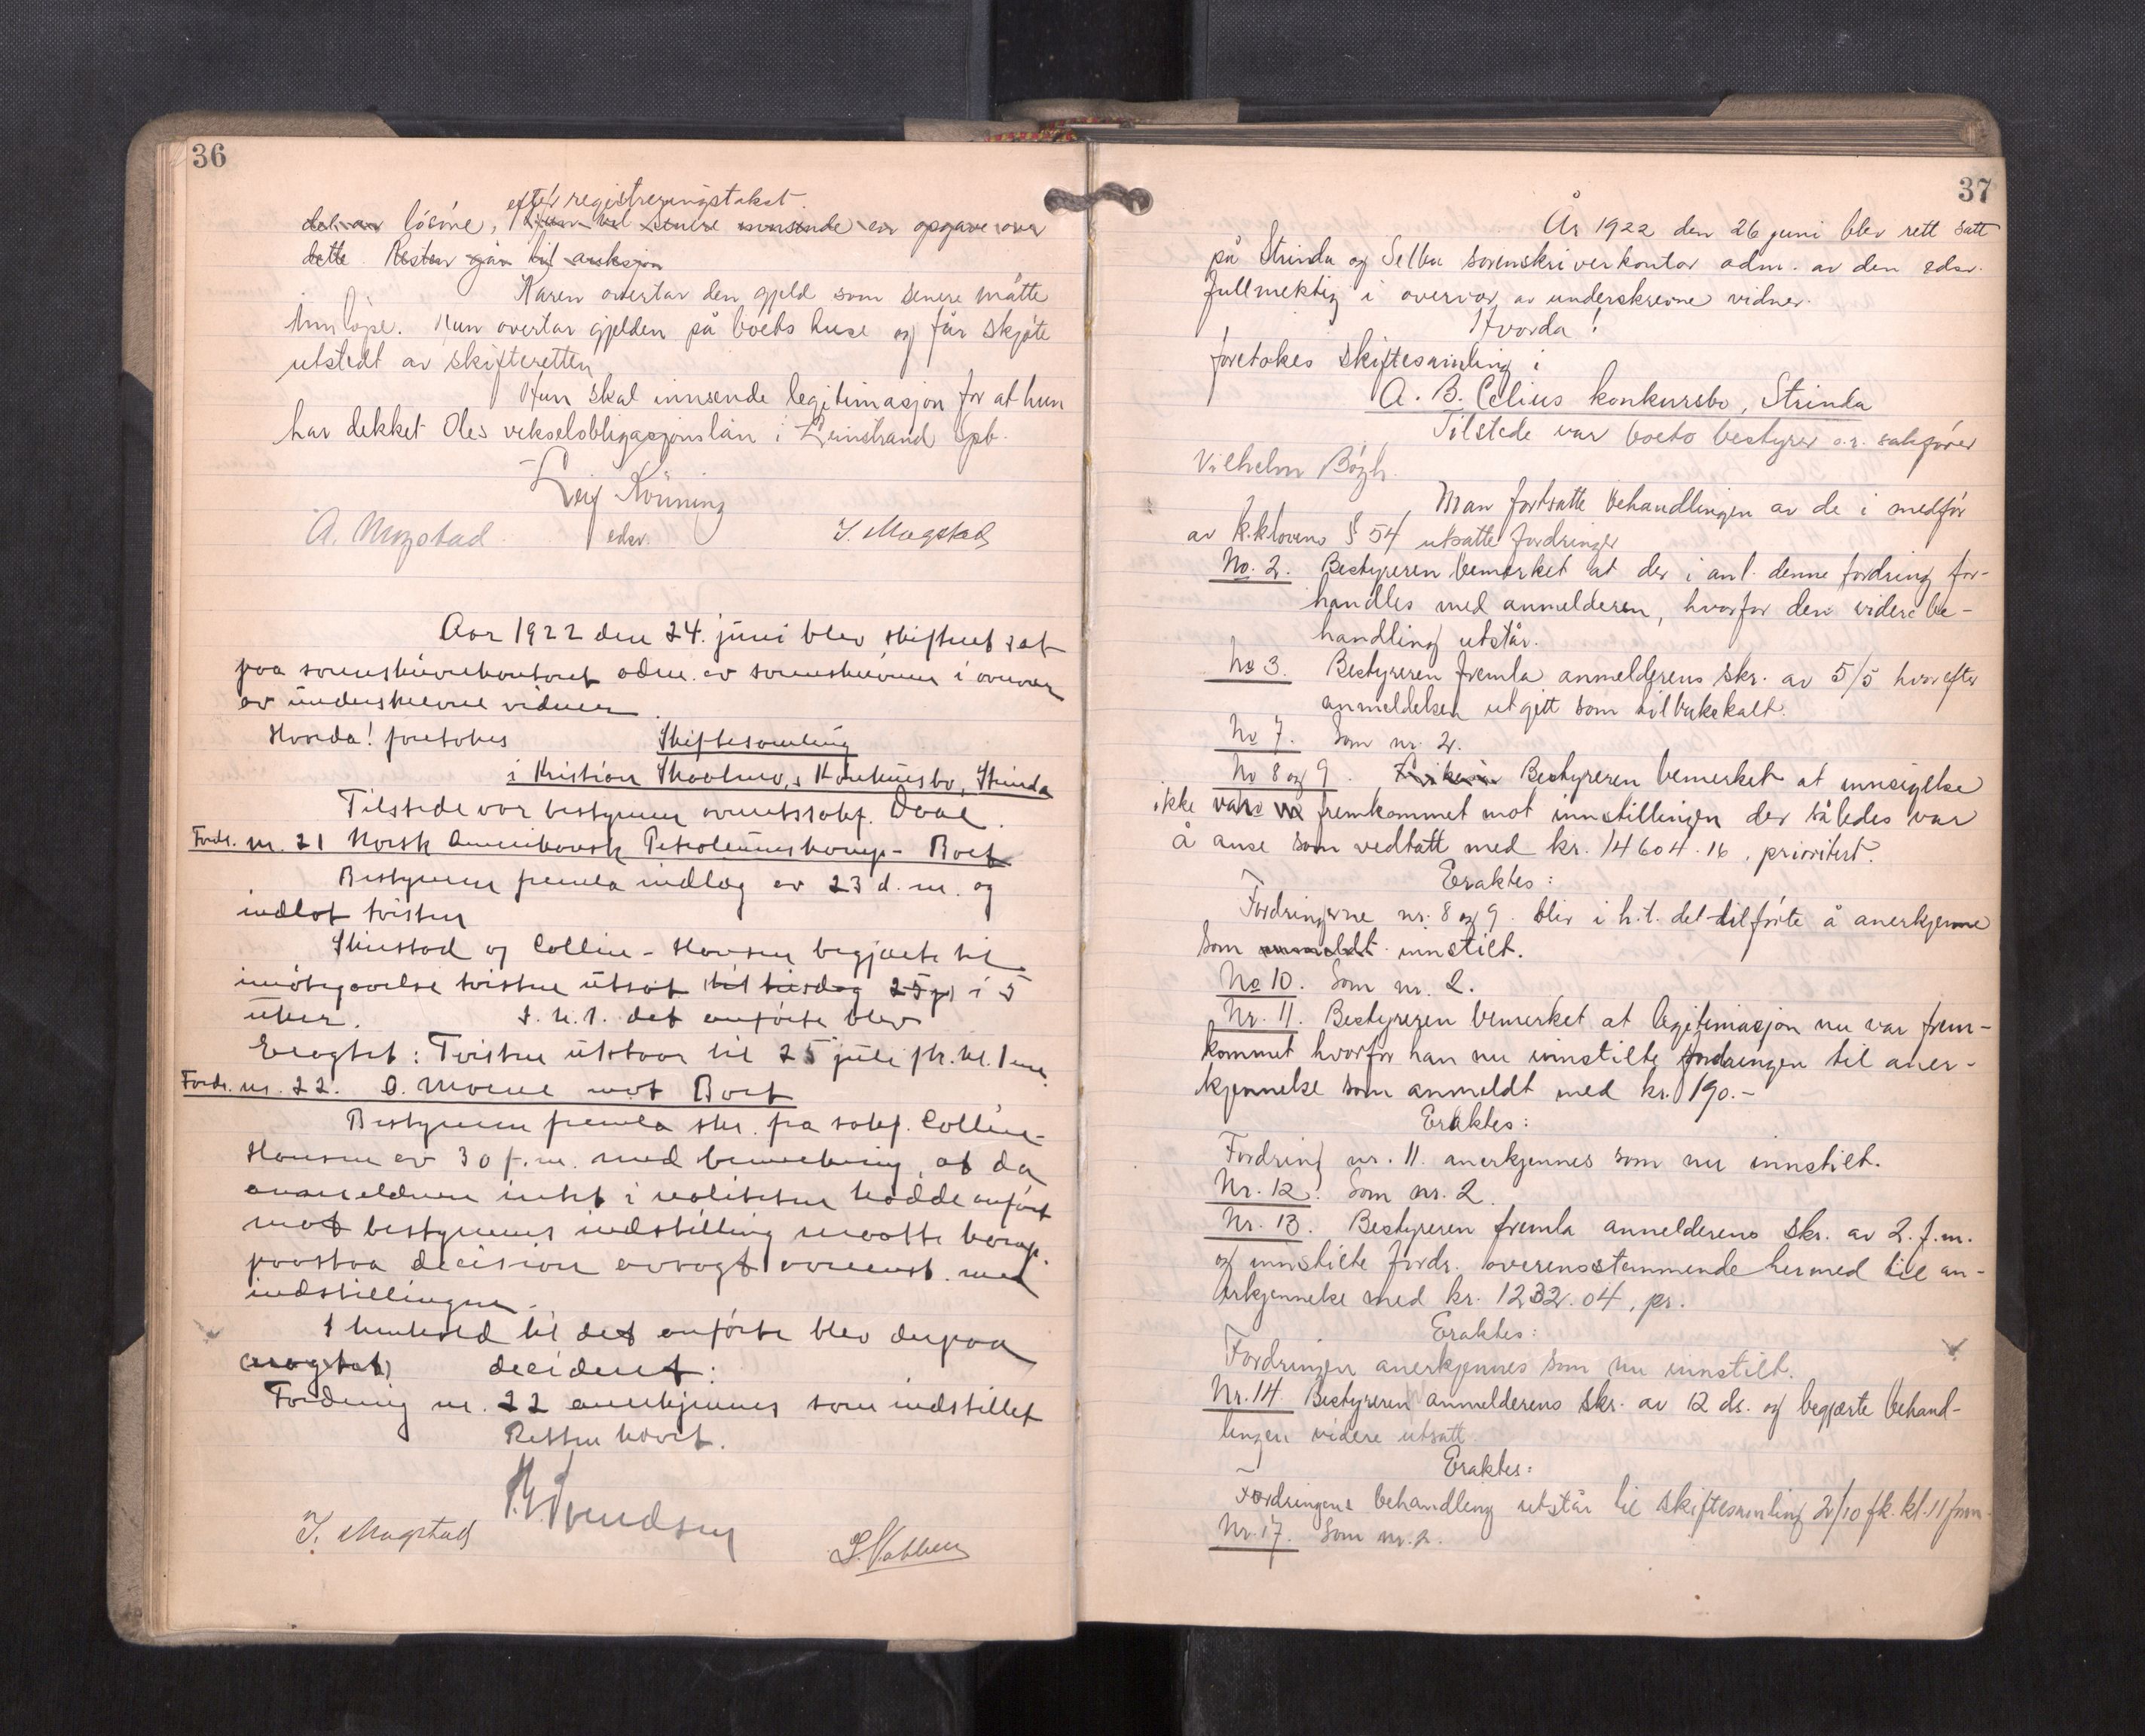 36
efter registreringstakst.
del av lösöre, Hun vil senere innsende en opgave over
dette. Resten går til auksjon
Karen overtar den gjeld som senere måtte
innløpe. Hun overtar gjelden på boets huse og får skjöte
utstedt av skifteretten
Hun skal innsende legitimasjon for at hun
har dekket Oles vekselobligasjonslån i Leinstrand Spb.
Leif
A. Mogstad edsv. J. Mogstad
Aar 1922 den 24. juni blev skifteret sat
paa sorenskriverkontoret adm. av sorenskriveren i overvær
av underskrevne vidner
Hvorda! foretokes Skiftesamling
i Kristian Skoglunds Konkursbo, Strinda
Tilstede var bestyreren overretssakf.
Fordr. nr. 21 Norsk Amerikansk Petroleumskomp. - Boet
Bestyreren fremla indlæg av 23 d. m. og
indlot tvisten
og Collin-Hansen begjærte til
imötegaaelse tvisten utsat til tirsdag 25 i 5
uker. I. h. t. det anförte blev
Eragtet: Tvisten utstaar til 25 juli fk. kl. 1 em.
Fordr. nr. 22. O. Moene mot Boet
Bestyreren fremla skr. fra sakf. Collin-
Hansen av 30 f. m. med bemerkning, at da
anmelderen intet i realiteten hadde anfört
mot bestyrerens indstilling maatte han
paastaa decision avsagt overenst. med
indstillingen.
I henhold til det anförte blev derpaa
eragtet decideret:
Fordring nr. 22 anerkjennes som indstillet
Retten hævet.
J. Mogstad
37
År 1922 den 26 juni blev rett satt
på Strinda og Selbu sorenskriverkontor adm. av den edsv.
fullmektig i overvær av underskrevne vidner.
Hvorda!
foretokes skiftesamling i
A. B. Celius konkursbo, Strinda
Tilstede var boets bestyrer o.r. sakförer
Vilhelm Bögh.
Man fortsatte behandlingen av de i medför
av k.klovens § 54 utsatte fordringer
No. 2. Bestyreren bemerket at der i anl. denne fordring for-
handles med anmelderen, hvorfor den videre be-
handling utstår.
No 3. Bestyreren fremla anmelderens skr. av 5/5 hvorefter
anmeldelsen utgitt som tilbakekalt.
No 7. Som nr. 2.
No 8 og 9. Bestyreren bemerket at innsigelse
ikke var fremkommet mot innstillingen der således var
å anse som vedtatt med kr. 14604.16, prioritert.
Eraktes:
Fordringerne nr. 8 og 9. blir i h.t. det tilförte å anerkjenne
som anmeldt innstilt.
No 10. Som nr. 2.
Nr. 11. Bestyreren bemerket at legitimasjon nu var frem-
kommet hvorfor han nu innstilte fordringen til aner-
kjennelse som anmeldt med kr. 190.-
Eraktes:
Fordring nr. 11. anerkjennes som nu innstilt.
Nr. 12. Som nr. 2.
Nr. 13. Bestyreren fremla anmelderens skr. av 2. f.m.
og innstilte fordr. overensstemmende hermed til an-
erkjennelse med kr. 1232.04, pr.
Eraktes:
Fordringen anerkjennes som nu innstilt.
Nr. 14. Bestyreren anmelderens skr. av 12 ds. og begjærte behand-
lingen videre utsatt.
Eraktes:
Fordringens behandling utstår til skiftesamling 2/10 fk. kl. 11 form.
Nr. 17. Som nr. 2.